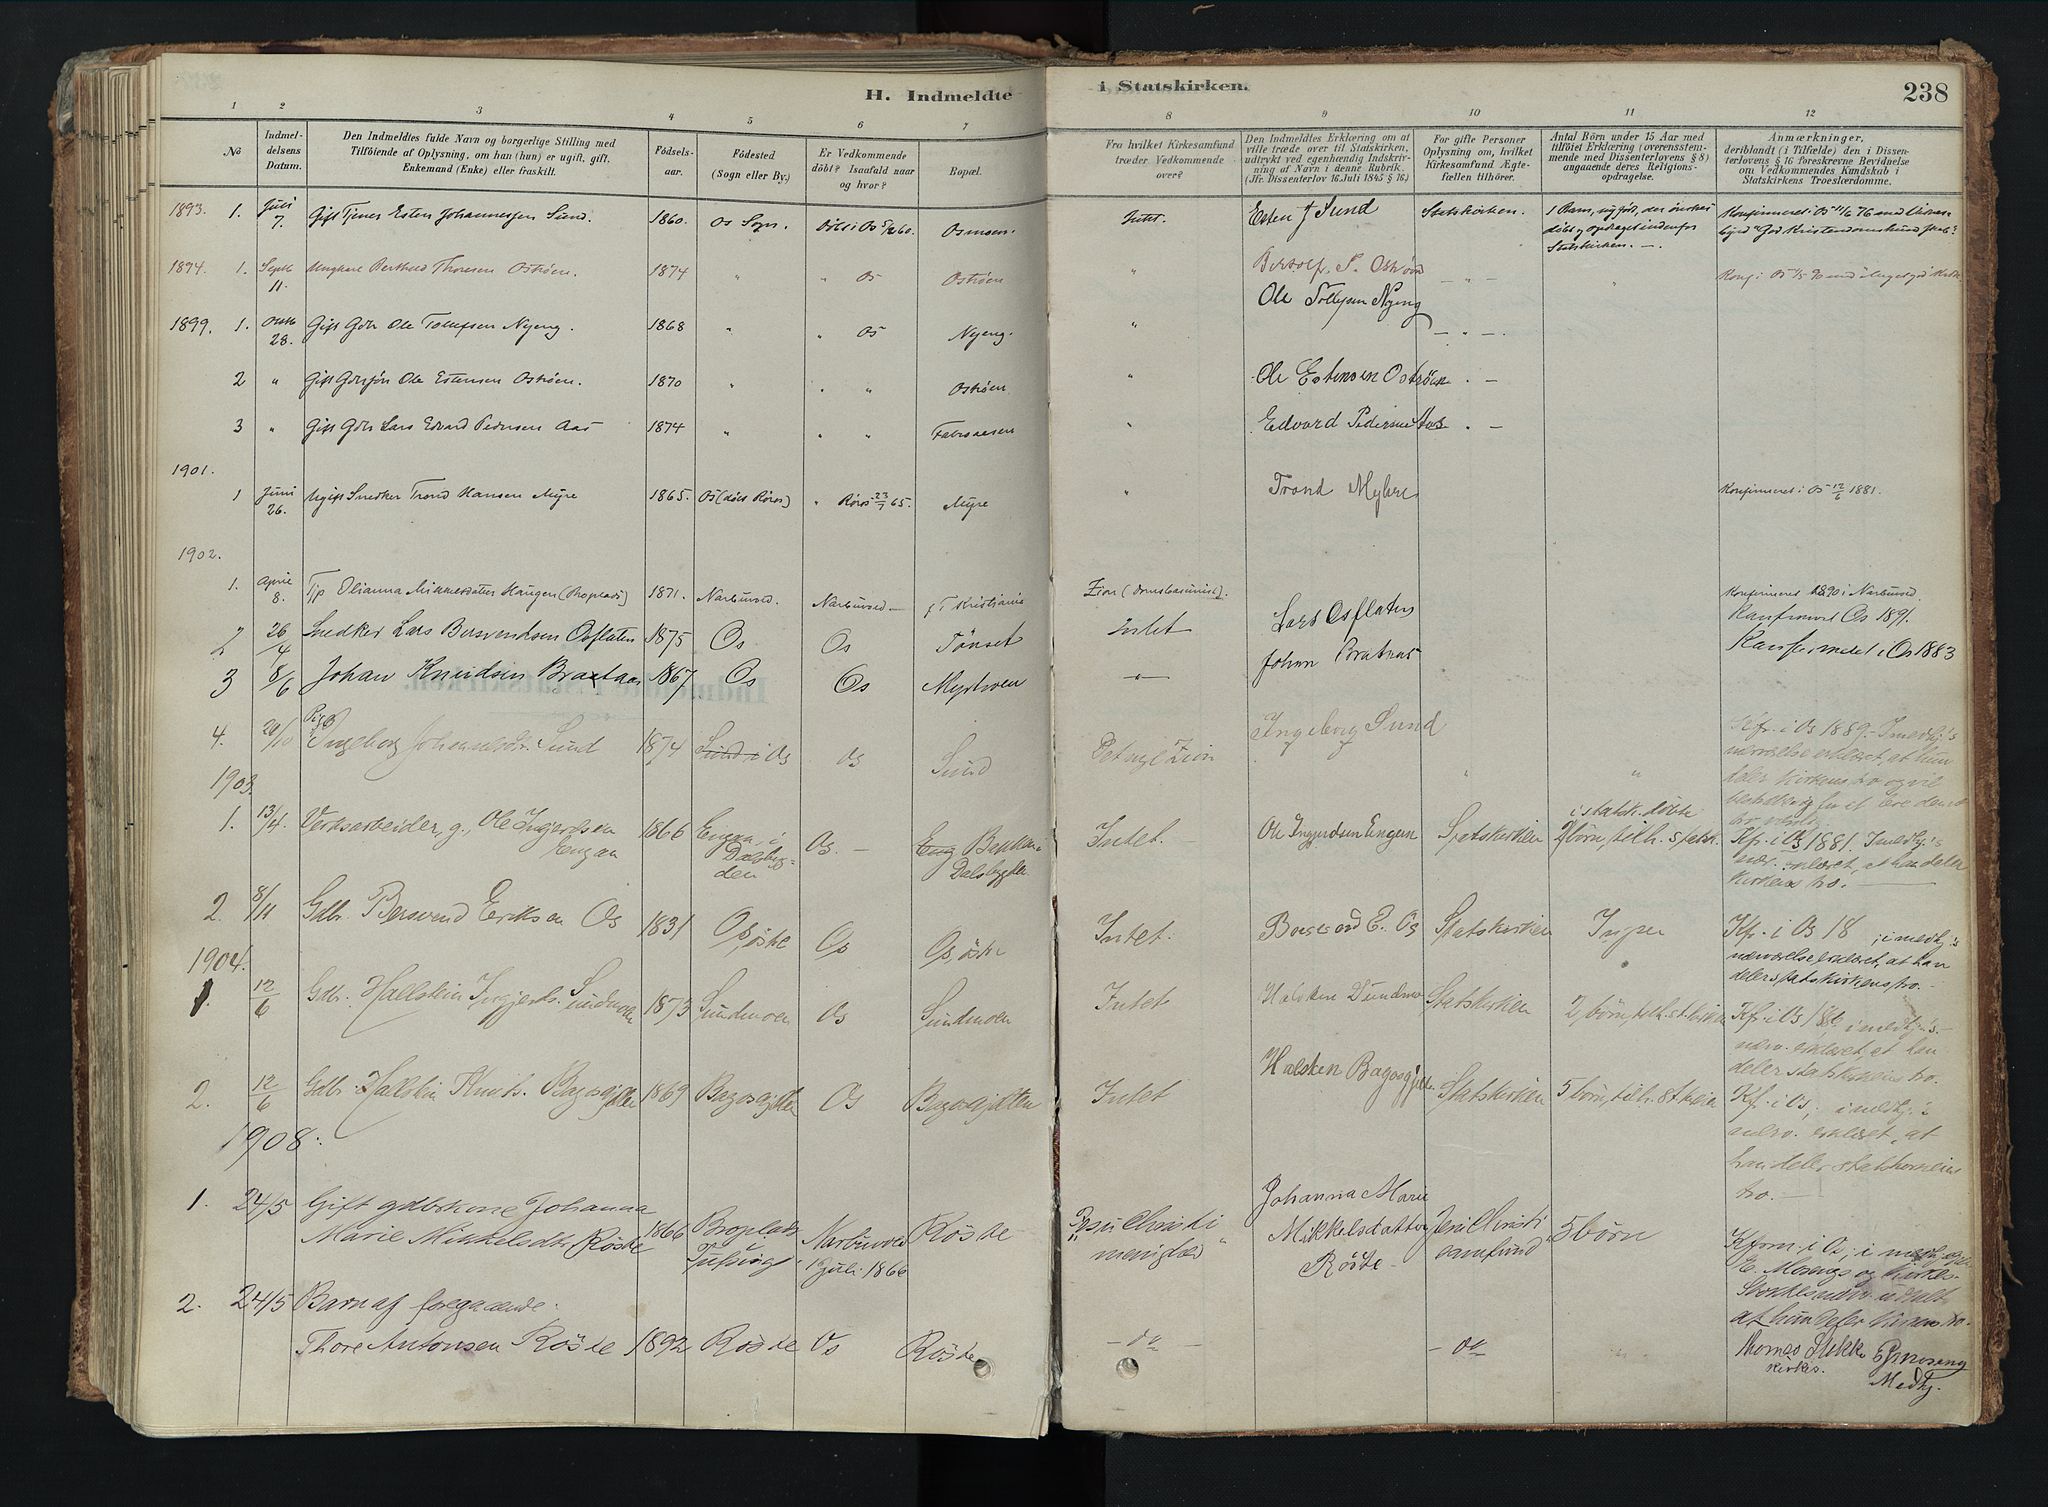 H. Indmeldte i Statskirken.
238
1 2 3 4 5 6 7 8 9 10 11 12
No
Indmeldelsens Datum.
Den Indmeldtes fulde Navn og borgerlige Stilling med
Tilföiende af Oplysning, om han (hun) er ugift, gift,
Enkemand (Enke) eller fraskilt.
Födselsaar.
Födested
(Sogn eller By.)
Er Vedkommende
döbt? Isaafald naar
og hvor?
Bopæl.
Fra hvilket Kirkesamfund
træder Vedkommende
over?
Den Indmeldtes Erklæring om at
ville træde over til Statskirken,
udtrykt ved egenhændig Indskrivning
af Navn i denne Rubrik.
(Jfr. Dissenterlov 16 Juli 1845 § 16.)
For gifte Personer
Oplysning om, hvilket
Kirkesamfund Ægtefællen
tilhörer.
Antal Börn under 15 Aar med
tilföiet Erklæring (overensstemmende
med Dissenterlovens § 8)
angaaende deres Religionsopdragelse.
Anmærkninger,
deriblandt (i Tilfælde) den i Dissenterlovens
§ 16 foreskrevne Bevidnelse
om Vedkommendes Kundskab i
Statskirkens Troeslærdomme.
1893. 1. Juli 7. Gift Tjener Esten Johannessen Sund. 1860. Os Sogn. Döbt i Os Osmoen. Intet. Esten J Sund Statskirken. 1 Barn, der önskes
döbt og opdraget indenfor
Statskirken. —
Konfirmeret i Os
1894. 1. Septb 11. Ungkarl Berthold Thoresen Oströen. 1874 " " Os Oströen " — " —
1899. 1. Oktb 28. Gift Gdbr Ole Tollefsen Nyeng. 1868 " " Os Nyeng. " Ole Tollefsen Nyeng — " —
2 " Gift Gdbrsøn Ole Estensen Oströen. 1870 " " " Oströen " Ole Estensen Oströen . —
3 " Gift Gdbr Lars Edvard Pedersen Aas 1874 " " " " Edvard Pedersen Aas . —
1901.
1 Juni 26. Ugift Snedker Trond Hansen Myre 1865. Os (döbt Röros) " Röros 23/7 65. Myre " Trond Konfirmeret i Os 12/6 1881.
1902.
1. April 8. Olianna Mikkelsdatter Haugen 1871. Narbuvoll. Narbuvoll — Kristiania Zion Konfirmeret 1890 i Narbuvold.
2 26/4 Snedker Lars Bersvendsen Osflaten 1875 Os Os Tönset Intet Lars Osflaten Konfirmeret Os 1891.
3 8/6 Johan Knudsen Brataas 1867 Os Os Myrmoen — " — Johan Brataas Konfirmeret i Os 1883
4. 20/10 Pige Ingeborg Johannesdr. Sund 1874 Sund i Os Os Sund Det nye Zion Ingeborg Sund " " Kfr. i Os 1889. I medhj.'s
nærværelse erklæret, at hun
deler kirkens tro og vil
1903.
1. 13/4. Verksarbeider, g., Ole Ingjerdsen
Engan 1866 Engan, i
Dalsbygden Os. — Eng Bakken i
Dalsbygden Intet. Ole Ingjerdsen Engen Statskirken i statsk. døbte
2 börn, tilh. statsk. Kf. i Os 1881. I medhj.'s
nær. erklæret, at han deler
kirkens tro. —
2. 8/11 Gdbr. Bersvend Eriksen Os 1831 Os, östre Os Os, östre Intet. Bersvend E. Os Statskirken Ingen Kf. i Os 18 ; i medhj.'s
nærværelse erklæret, at han
deler statskirkens tro. —
1904.
1. 12/6 Gdbr. Hallstein Ingjerts. Sundmoen 1873 Sundmoen Os Sundmoen Intet Halsten Sundmo Statskirken 2 börn, tilh. st. kirken Kfr. i Os i medhj.'s
nærv. erklæret, at han
deler statskirkens tro.
2. 12/6 Gdbr. Hallstein Knuts. Bagosgjelten 1869 Bagosgjelten Os Bagosgjelten Intet Halsten Statskirken 5 börn, tilh. st. kirken Kf. i Os, i medhj.'s
nærv. erklæret, at
han deler statskirkens
tro. —
1908.
1. 24/5 Gift gdbskone Johanna
Marie Mikkelsdtr. Röste 1866 Broplads
i Tufsing Narbuvold
1 juli 1866 Röste "Jesu Christi
menighed" Johanna Marie
Mikkelsdatter
Röste Jesu Christi
samfund 5 börn Kfirm. i Os; i medhj.
E. Mosengs og kirkes.
at hun deler kirkens tro.
2. 24/5 Barn af foregaaende.
Thore Antonsen Röste 1892 Röste Os Röste — do — — do
Thomas Stikke E Moseng
kirkes. Medhj.